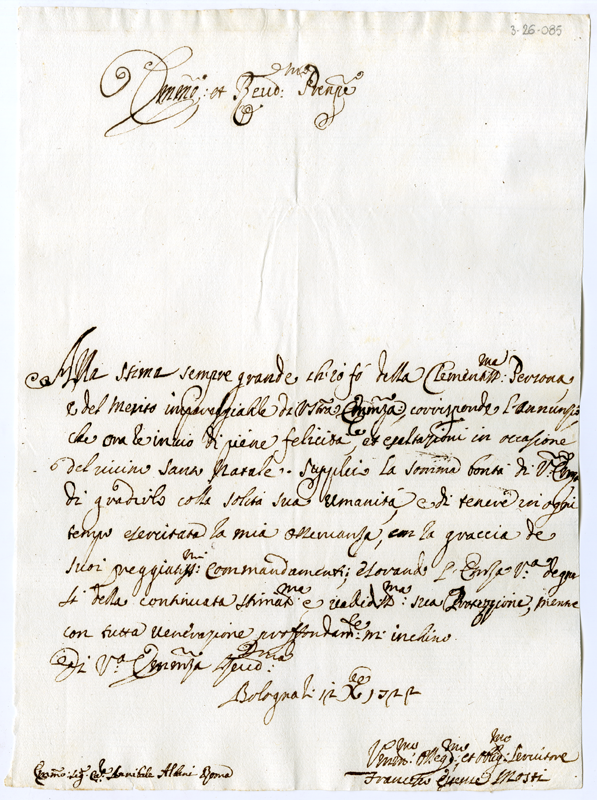 3-26-085
Emin̄o: et Reud:mo Prenpe
Alla stima sempre grande ch'io fó della Clementiss:ma Persona,
e del merito impareggiabile di Vostra Eminenza, corrisponde l'annunzio
che ora le invio di piene felicità, et esaltazioni in occasione
del vicino Santo Natale. Supplico la somma bontà di V:ra
di gradirlo colla solita sua umanità, e di tenere in ogni
tempo esercitata la mia osservanza, con la graccia de
suoi preggiatiss:mi commandamenti; e
della continuata stimat:ma e valid:ma sua Protezzione, mentre
con tutta venerazione proffondam:te m'inchino.
Di V:a Emin̄za Reud:ma
Bologna li 12 Xbre 1722
Vmin:mo Obbligmo Servitore
Francesco Mosti
Emin̄o: Sig: Card: Annibale Albani Roma